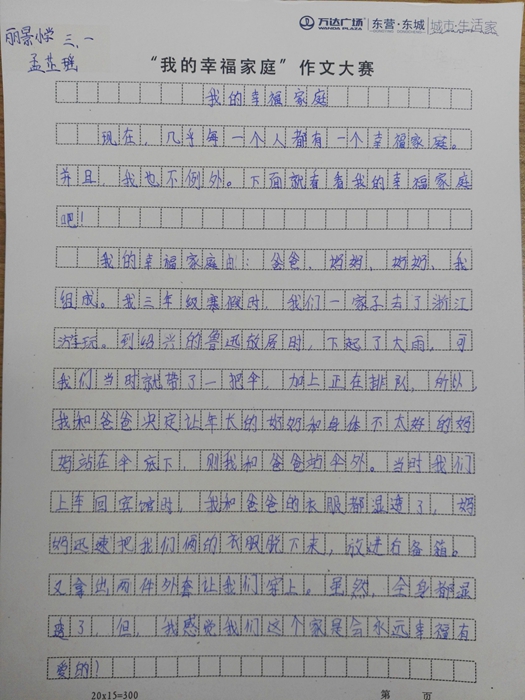 万达广场 WANDA PLAZA 东营·东城 DONGYING·DONGCHENG 城市·生活家
丽景小学 三、一
孟芷瑶
“我的幸福家庭”作文大赛
我的幸福家庭
现在，几乎每一个人都有一个幸福家庭。
并且，我也不例外。下面就看看我的幸福家庭
吧！
我的幸福家庭由：爸爸、妈妈、奶奶、我
组成。我三年级寒假时，我们一家子去了浙江
游玩。到绍兴的鲁迅故居时，下起了大雨，可
我们当时就带了一把伞，加上正在排队，所以，
我和爸爸决定让年长的奶奶和身体不太好的妈
妈站在伞底下，则我和爸爸站伞外。当时我们
上车回宾馆时，我和爸爸的衣服都湿透了，妈
妈迅速把我们俩的衣服脱下来，放进后备箱。
又拿出两件外套让我们穿上。虽然，全身都湿
透了，但，我感觉我们这个家是会永远幸福有
爱的！
20x15=300 第 页